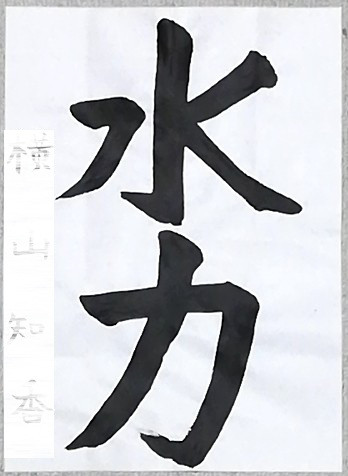 水力
山知香